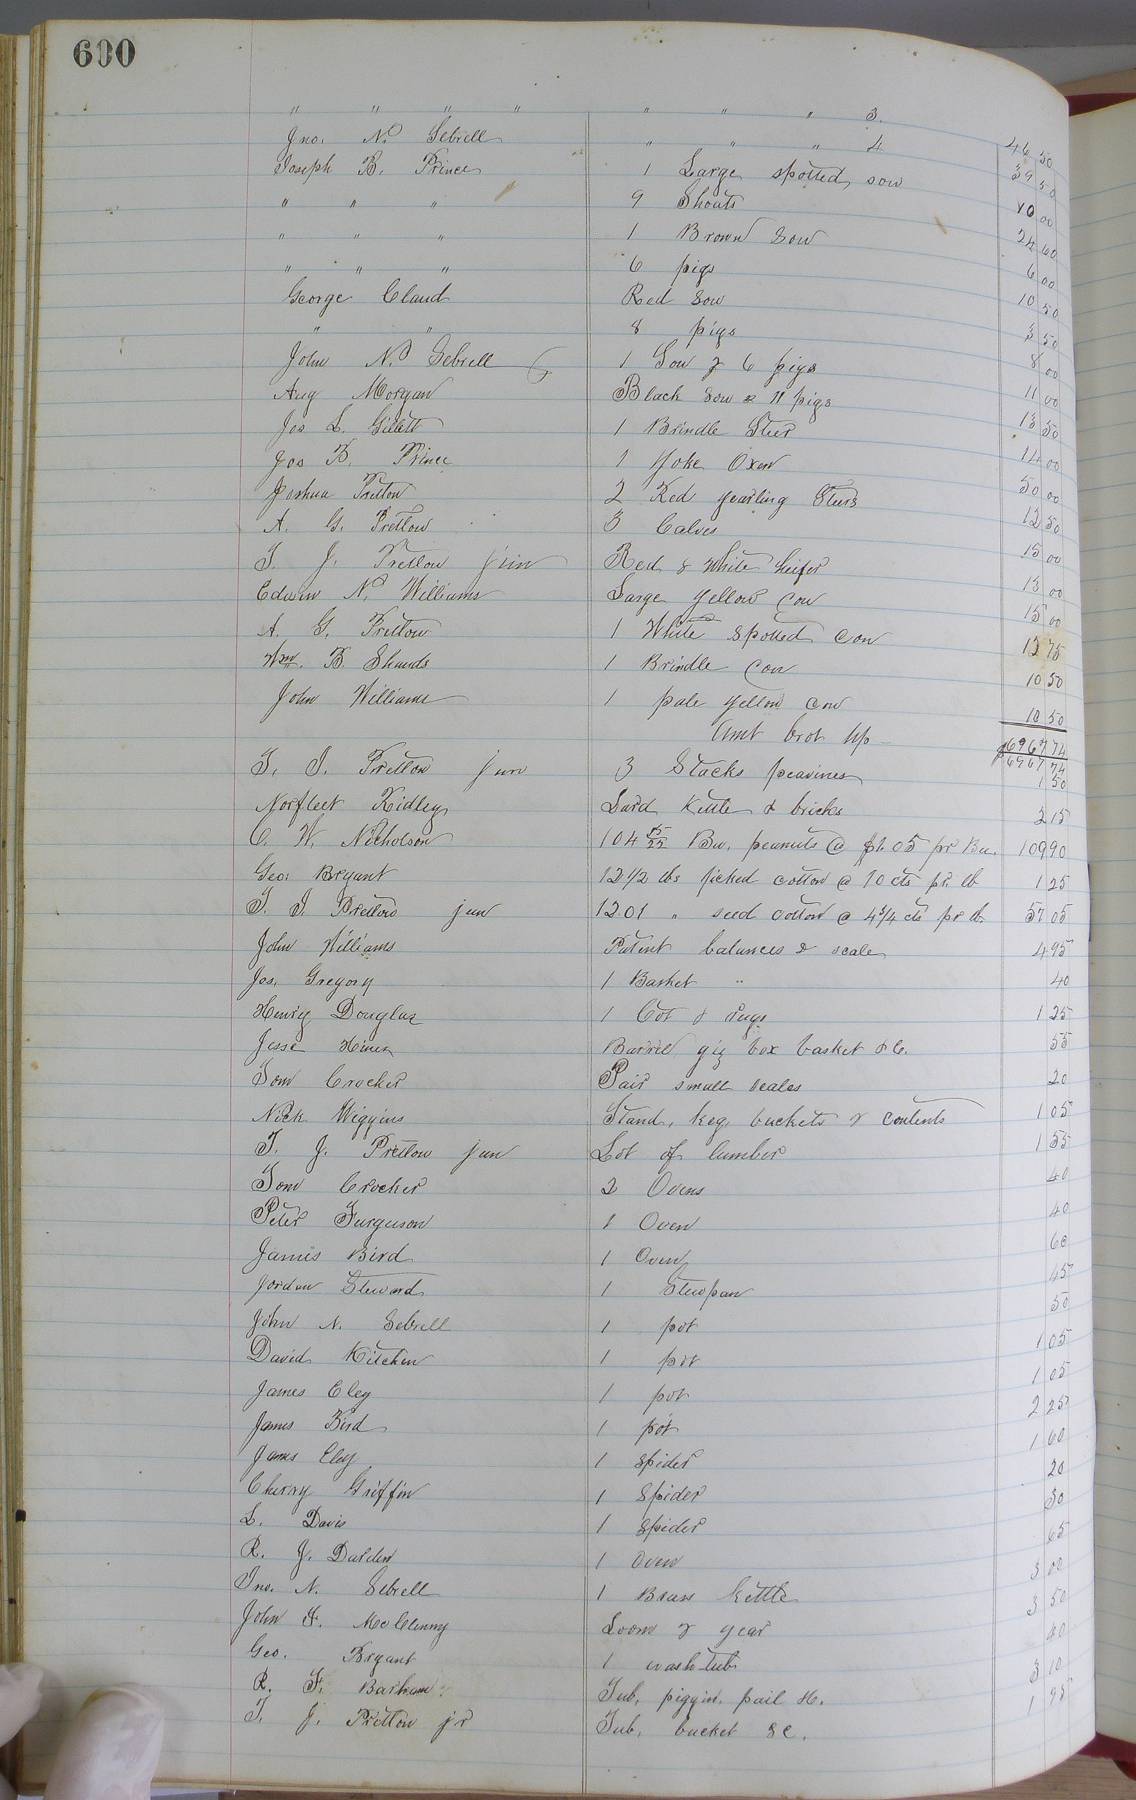 600
" " " " " " " 3.
Jno. N. Sebrell " " " 4 46 50
Joseph B. Prince 1 Large spotted sow 39 50
" " " 9 Shoats 10 00
" " " 1 Brown Sow 24 60
" " " 6 pigs 6 00
George Claud Red Sow 10 50
" " 8 pigs 3 50
John N. Sebrell 1 Sow & 6 pigs 8 00
Aug Morgan Black Sow & 11 pigs 11 00
Jos L. Gillett 1 Brindle Steer 13 50
Jos B. Prince 1 Yoke Oxen 14 00
Joshua Pretlow 2 Red yearling Steers 50 00
A. G. Pretlow 3 Calves 12 50
T. J. Pretlow jun Red & White heifer 15 00
Edwin N. Williams Large yellow Cow 13 00
A. G. Pretlow 1 White Spotted Cow 15 00
Wm. B Shands 1 Brindle Cow 12 75
John Williams 1 pale yellow Cow 10 50
Amt brot up 10 50
$6967 74
6967 74
T. J. Pretlow jun 3 Stacks peavines 1 50
Norfleet Ridley Lard Kettle & bricks 3 15
C. W. Nicholson 104 15/22 Bu. peanuts @ $1.05 pr Bu. 109 90
Geo. Bryant 12 1/2 lbs picked cotton @ 10 cts pr. lb 1 25
T. J. Pretlow jun 1201 " seed cotton @ 4 3/4 cts pr lb. 57 05
John Williams Patent balances & scale 4 95
Jos. Gregory 1 Basket " 40
Henry Douglas 1 Cot & rugs 1 25
Jesse Hines Barrel gig box basket &c. 55
Tom Crocker Pair small scales 20
Nick Wiggins Stand, keg, buckets & contents 1 05
T. J. Pretlow jun Lot of lumber 1 55
Tom Crocker 2 Ovens 40
Peter Furguson 1 Oven 40
James Bird 1 Oven 60
Jordan Steward 1 Stewpan 45
John N. Sebrell 1 pot 50
David Kitchen 1 pot 1 05
James Eley 1 pot 1 05
James Bird 1 pot 2 25
James Eley 1 Spider 1 60
Cherry Griffin 1 Spider 20
L. Davis 1 Spider 30
R. J. Darden 1 Oven 65
Jno. N. Sebrell 1 Brass Kettle 3 00
John F. McClenny Loom & gear 3 50
Geo. Bryant 1 wash tub 40
R. F. Barham Tub, piggin, pail &c. 3 10
T. J. Pretlow jr Tub, bucket &c. 1